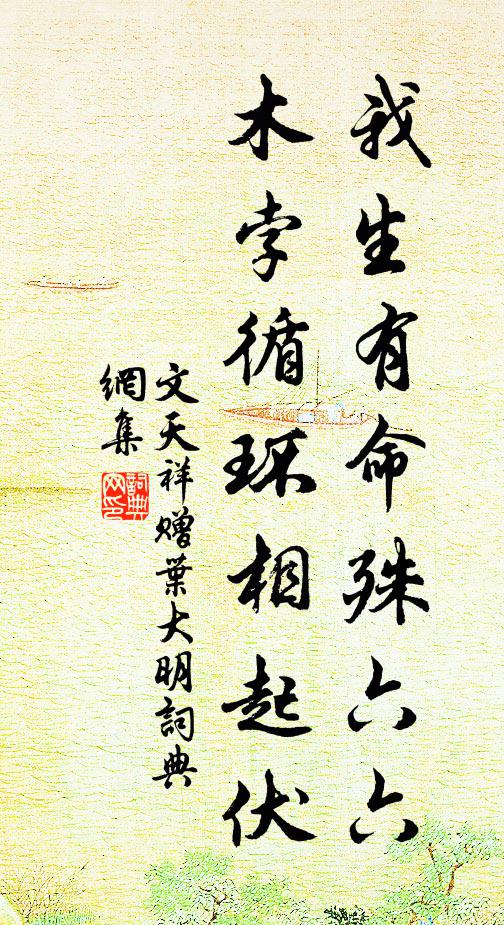 我生有命殊六六
木孛循环相起伏
文天祥赠葉大明詞典
網集
詞典
网印